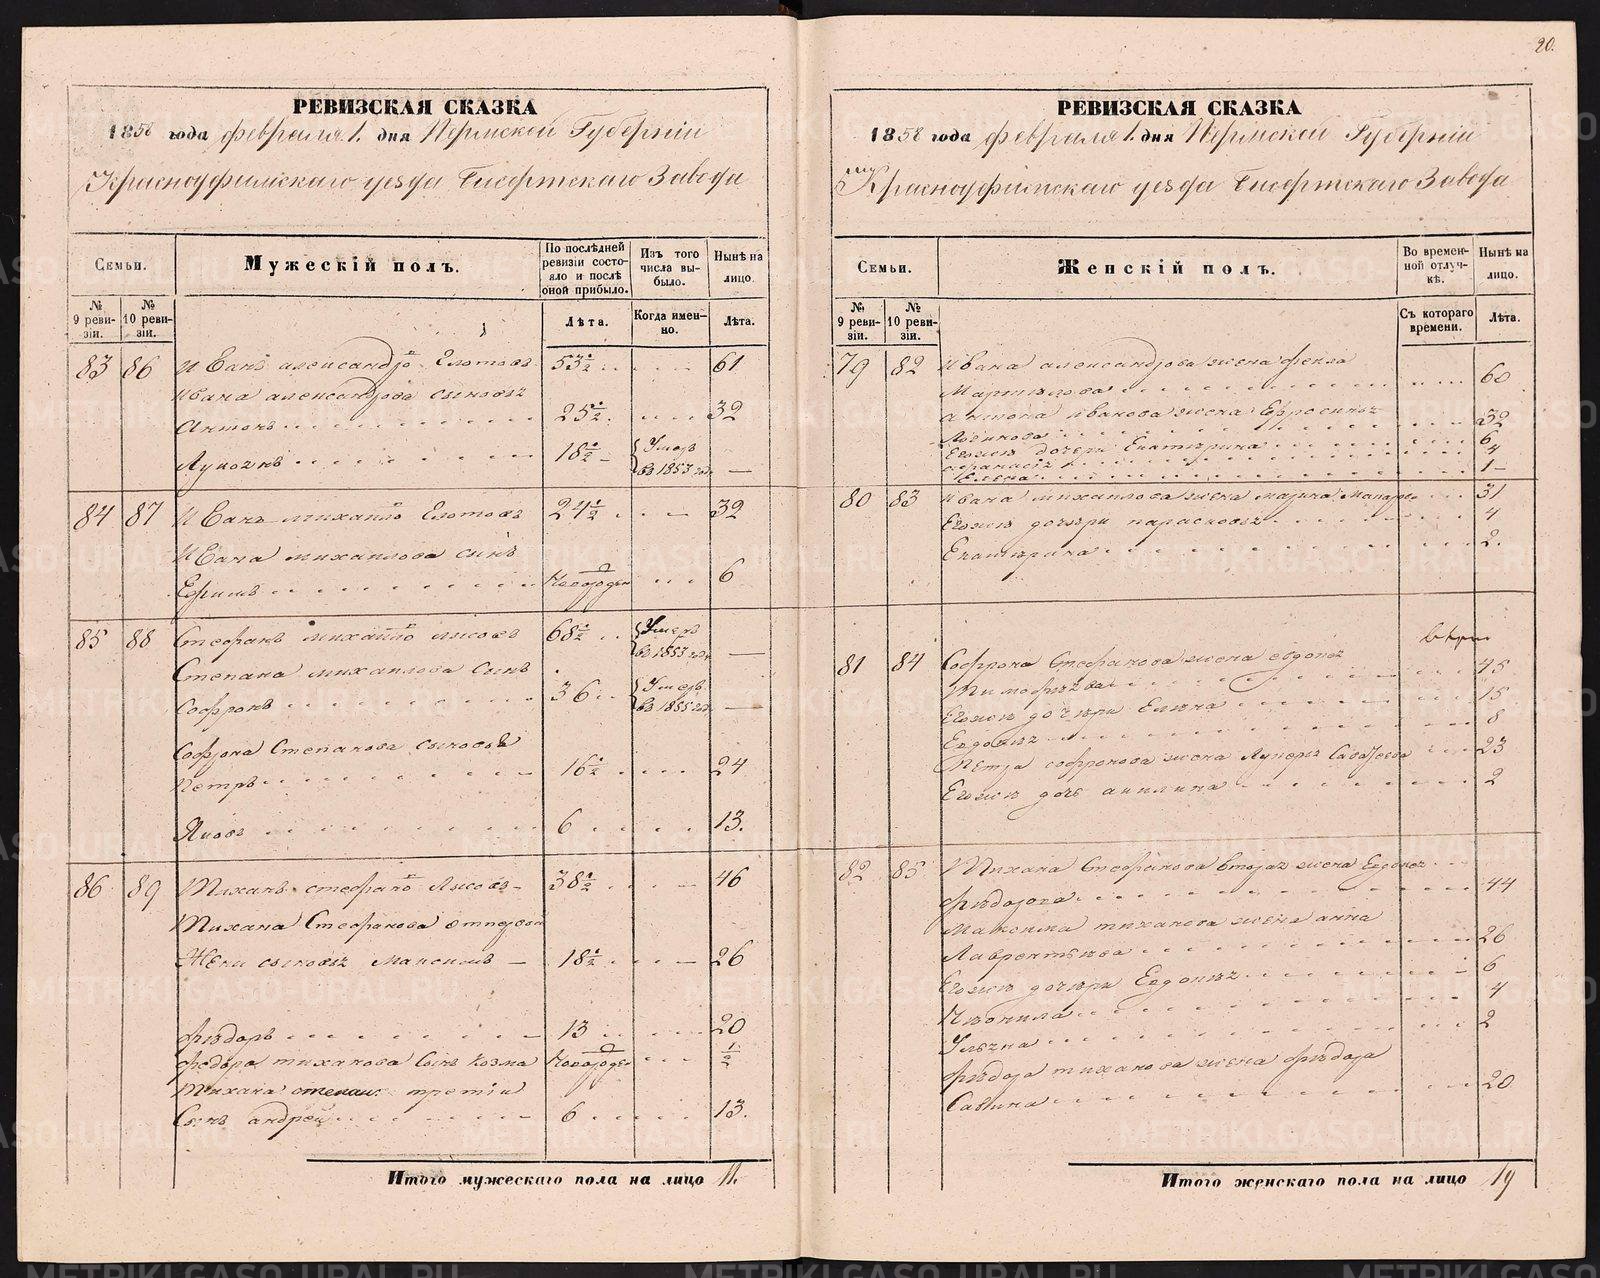 20.
РЕВИЗСКАЯ СКАЗКА
1858 года февраля 1. дня Пермской Губерніи
Красноуфимскаго уезда Бисертскаго Завода
Семьи.
Мужескій полъ.
По послѣдней ревизіи состояло и послѣ оной прибыло.
Изъ того числа выбыло.
Нынѣ на лицо.
№ 9 ревизіи.
№ 10 ревизіи.
Лѣта.
Когда именно.
Лѣта.
83 86 Иванъ александро 53½ 61
Ивана александрова сыновья
Антонъ 25½ 32
18½ Умеръ въ 1853 году —
84 87 Иванъ михайло 24½ 32
Ивана михаилова сынъ
Ефимъ новорожден 6
85 88 Стефанъ михайло лысовъ 68½ Умеръ въ 1853 году —
Степана михаилова сынъ
Софронъ 36 Умеръ въ 1855 году —
Софрона Степанова сыновья
Петръ 16½ 24
Яковъ 6 13.
86 89 Тиханъ стефано Лысовъ 38½ 46
Тихана Стефанова отпервой
Жены сыновья Максимъ 18½ 26
Фѣдоръ 13 20
Федора тиханова Сынъ Козма новорожден ½
Тихана степан. третій
Сынъ андрей 6 13.
Итого мужескаго пола на лицо 11.
РЕВИЗСКАЯ СКАЗКА
1858 года февраля 1. дня Пермской Губерніи
Красноуфимскаго уезда Бисертскаго Завода
Семьи.
Женскій полъ.
Во временной отлучкѣ.
Нынѣ на лицо.
№ 9 ревизіи.
№ 10 ревизіи.
Съ котораго времени.
Лѣта.
79 82 Ивана александрова жена фекла
60
антона иванова жена Ефросинья
32
Екатерина 6
4
Елена 1
80 83 Ивана михаилова жена марина 31
Егожъ дочери парасковья 4
Екатерина 2.
81 84 Софрона Стефанова жена евдокея
Тимофѣева 45
Егожъ дочери Елена 15
Евдокея 8
Петра софронова жена 23
Егожъ дочь акилина 2
82 85 Тихана Стефанова вторая жена Евдокея
Фѣдорова 44
Максима тиханова жена анна
Лаврентьева 26
Егожъ дочери Евдокея 6
4
Ульяна 2
Фѣдора тиханова жена
20
Итого женскаго пола на лицо 19
METRIKI.GASO-URAL.RU